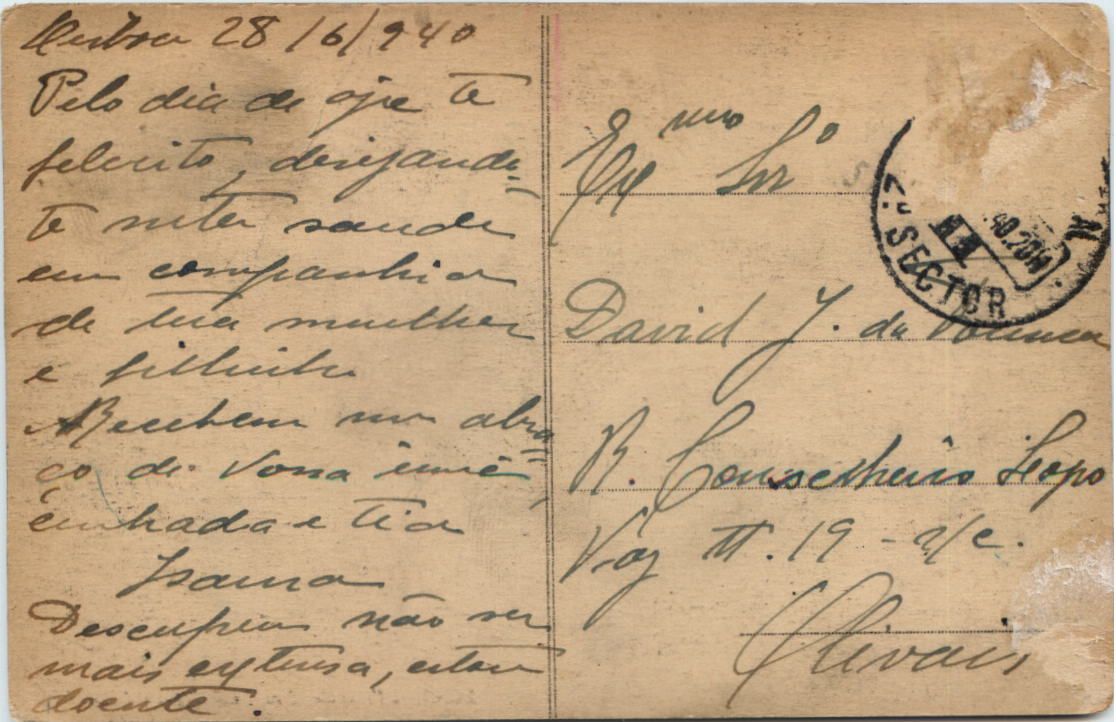 Lisboa 28/6/940
Pelo dia de oje te
felicito, desejando-
te muta saude
em companhia
de tua mulher
e filhinho
Recebem um abra-
ço de Vossa irmã,
cunhada e tia
Isaura
Desculpem não ser
mais extensa, estou
doente.
Exmo Snr
David J. da
R. Conselheiro Lopo
Vaz 19 - r/c.
Olivais
2º SECTOR
40.20H